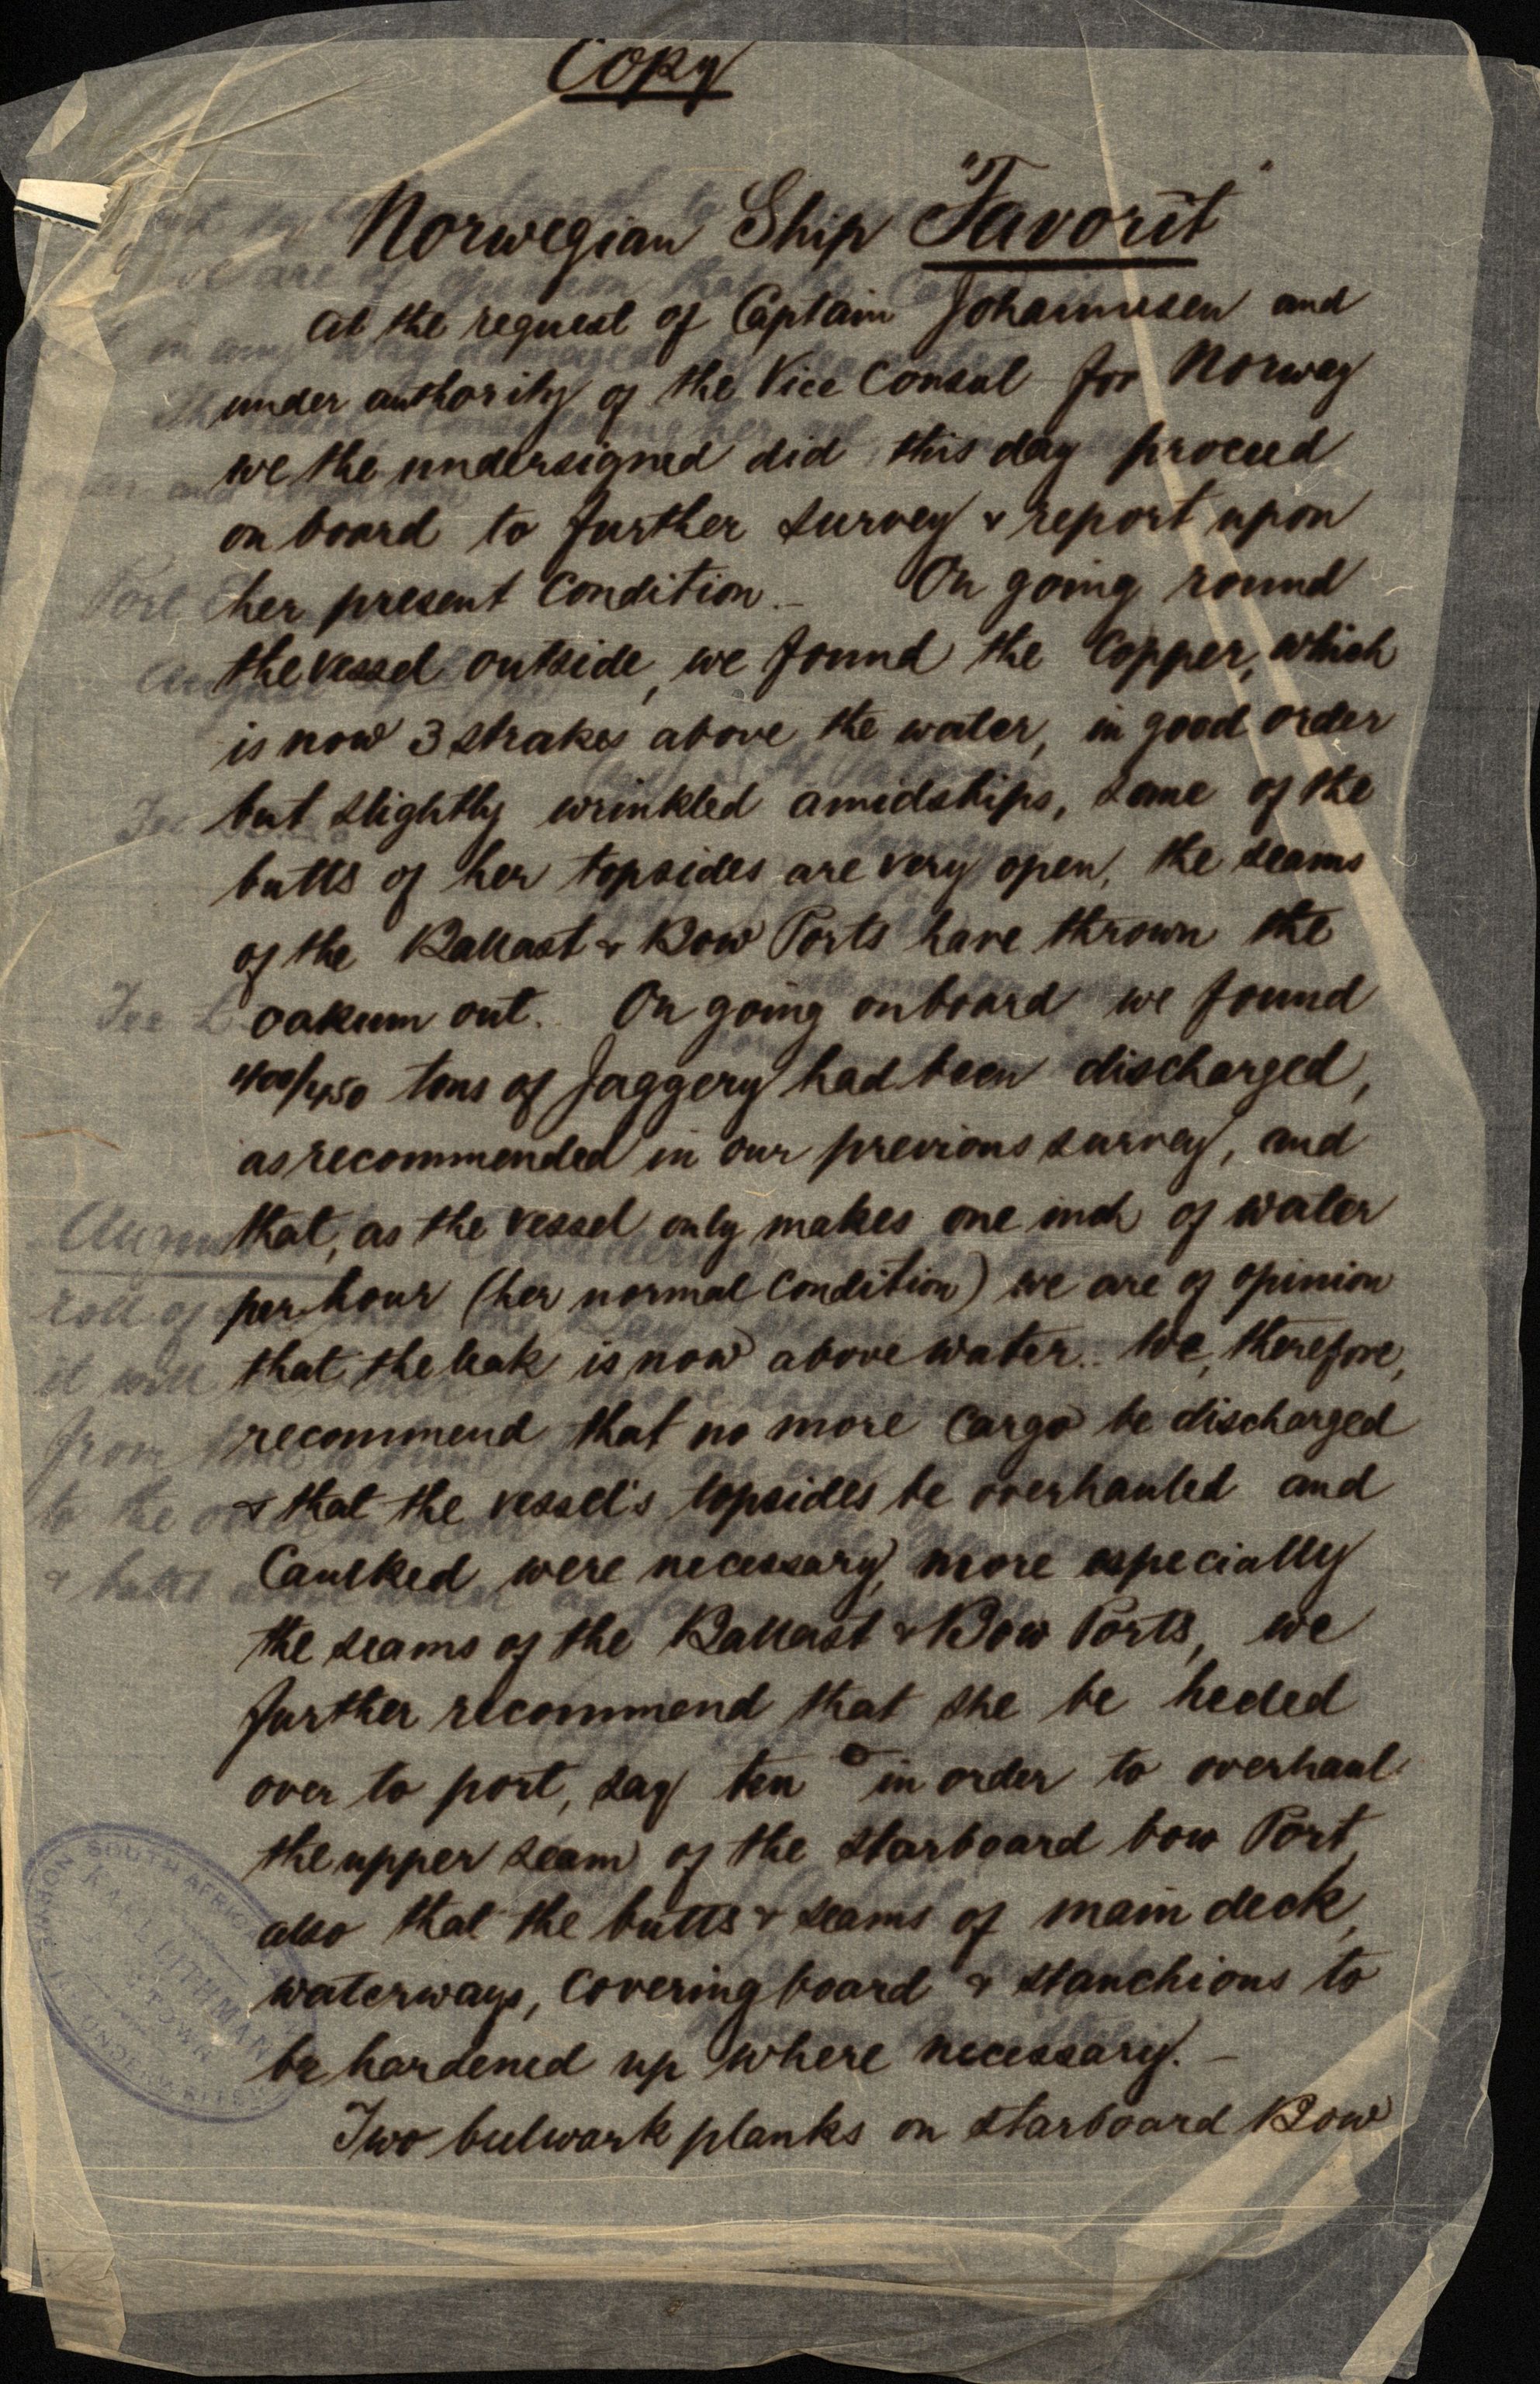 Copy
Norwegian Ship "Favorit"
At the request of Captain Johannesen and
under authority of the Vice Consul for Norway
we the undersigned did this day proceed
on board to further survey & report upon
her present Condition. — On going round
the vessel outside, we found the Copper, which
is now 3 strakes above the water, in good order
but slightly wrinkled amidships, some of the
butts of her topsides are very open, the seams
of the Ballast & Bow Ports have thrown the
oakum out. On going on board we found
400/450 tons of Jaggery had been discharged,
as recommended in our previous survey, and
that, as the vessel only makes one inch of water
per hour (her normal Condition) we are of opinion
that the leak is now above water. We, therefore,
recommend that no more Cargo be discharged
& that the vessel's topsides be overhauled and
Caulked were necessary, more especially
the seams of the Ballast & Bow Ports, we
further recommend that she be heeled
over to port, say ten ° in order to overhaul
the upper seam of the starboard bow Port,
also that the butts & seams of main deck,
waterways, Covering board & stanchions to
be hardened up where necessary. —
Two bulwark planks on starboard Bow
SOUTH AFRICA
KARL LITHMAN
UNDERWRITERS